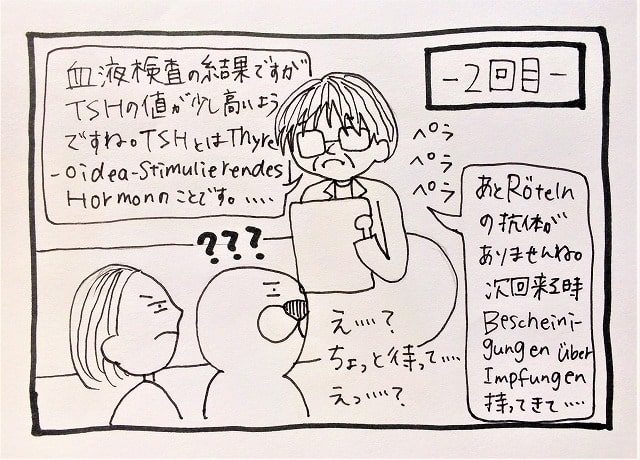 -2回目-
血液検査の結果ですが
TSHの値が少し高いよう
ですね。TSHとはThyre
-oidea-Stimulierendes
Hormonのことです。‥‥
ペラ
ペラ
ペラ
あとRöteln
の抗体が
ありませんね。
次回来る時
Bescheini-
gungen über
Impfungen
持ってきて‥‥
???
え‥‥?
ちょっと待って‥‥
えっ‥‥?